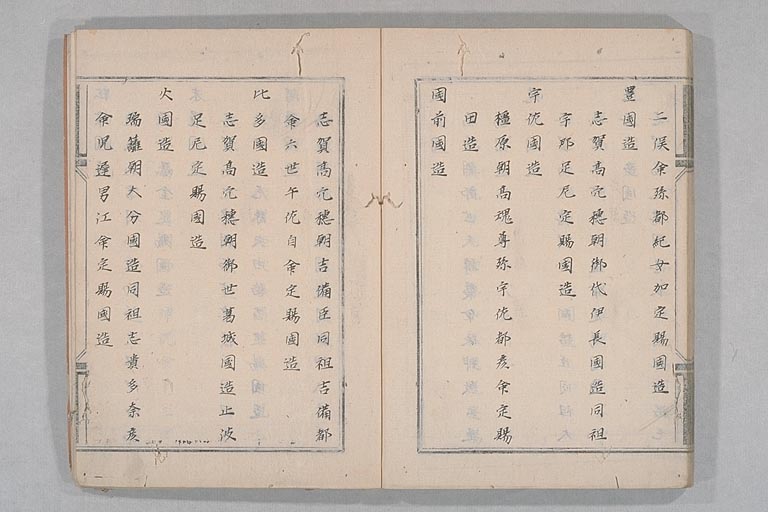 二俣命孫都紀女加定賜國造
豐國造
志賀髙穴穗朝御代伊甚國造同祖
宇那足尼定賜國造
宇佐國造
橿原朝髙魂尊孫宇佐都彦命定賜
國造
國前國造
志賀髙穴穗朝吉備臣同祖吉備都
命六世午佐自命定賜國造
比多國造
志賀髙穴穗朝御世葛城國造止波
足尼定賜國造
火國造
瑞籬朝大分國造同祖志貴多奈彦
命兒遲男江命定賜國造